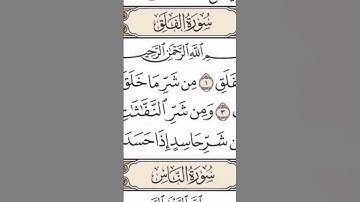 سُورَةُ الْفَلَقِ
مِ اللَّهِ الرَّحْمَٰنِ الرَّحِيمِ
فَلَقِ ١ مِن شَرِّ مَا خَلَقَ
٣ وَمِن شَرِّ النَّفَّاثَاتِ
ن شَرِّ حَاسِدٍ إِذَا حَسَدَ
سُورَةُ النَّاسِ